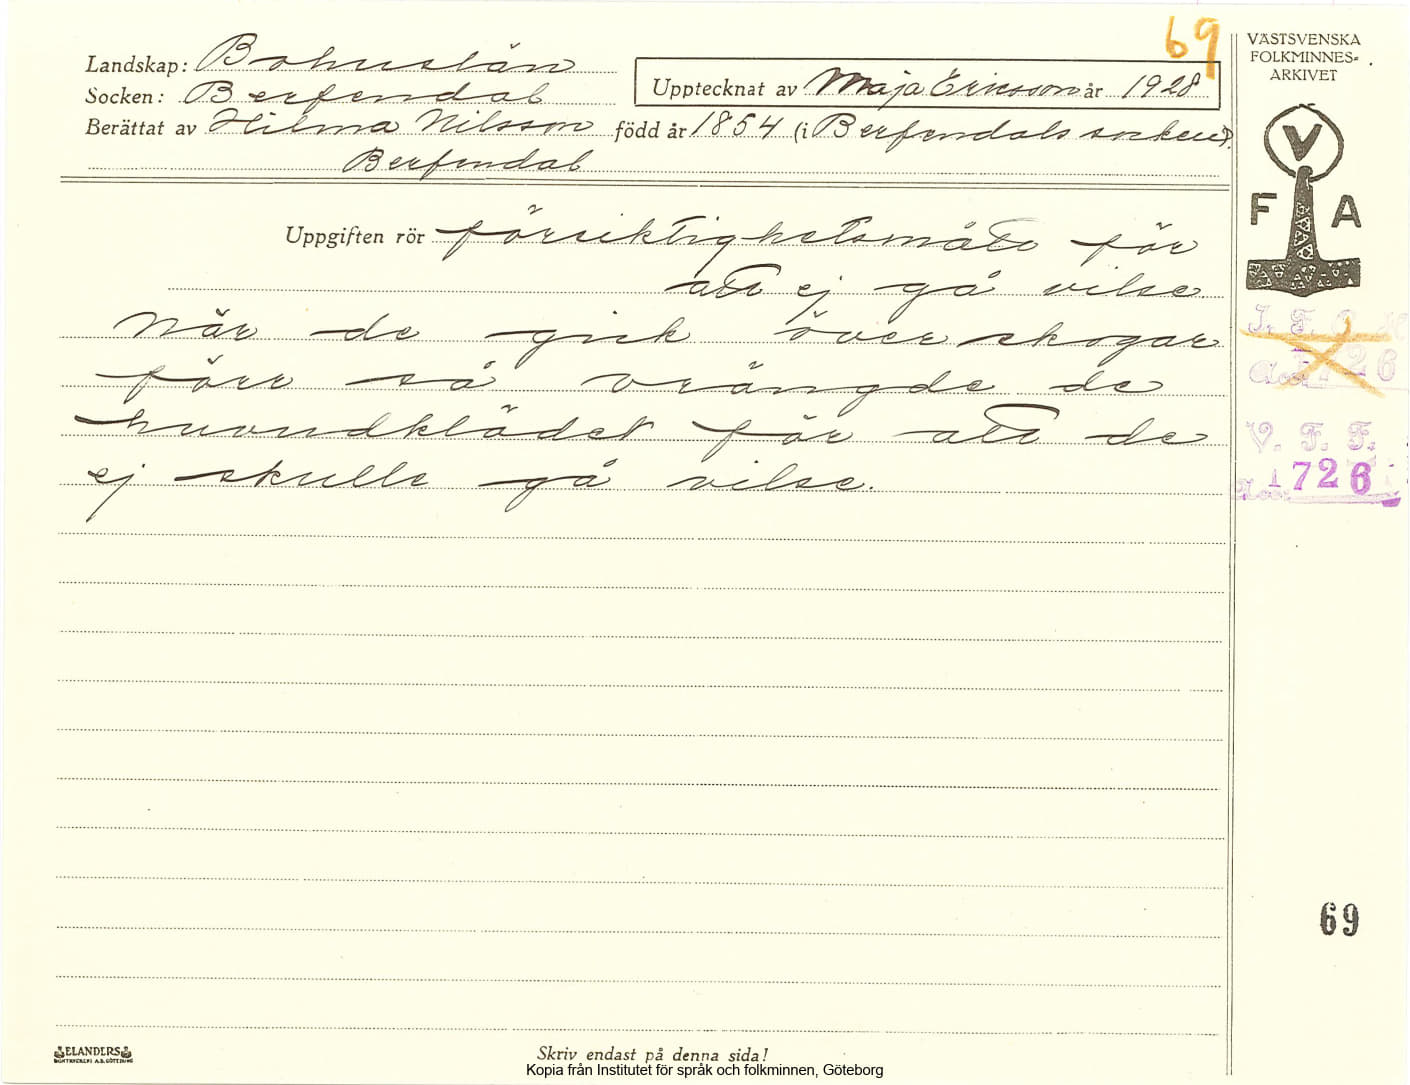 69
VÄSTSVENSKA
FOLKMINNES-
ARKIVET
Landskap: Bohuslän
Socken: Berfendal
Upptecknat av Maja Ericsson år 1928
Berättat av Hilma Nilsson född år 1854 (i Berfendals socken).
Berfendal
V
F A
Uppgiften rör försiktighetsmått för
att ej gå vilse
När de gick över skogar
förr så vrängde de
huvudklädet för att de
ej skulle gå vilse.
V. F. F.
Acc. 1726
69
ELANDERS
BOKTRYCKERI A.B. GÖTEBORG
Skriv endast på denna sida!
Kopia från Institutet för språk och folkminnen, Göteborg